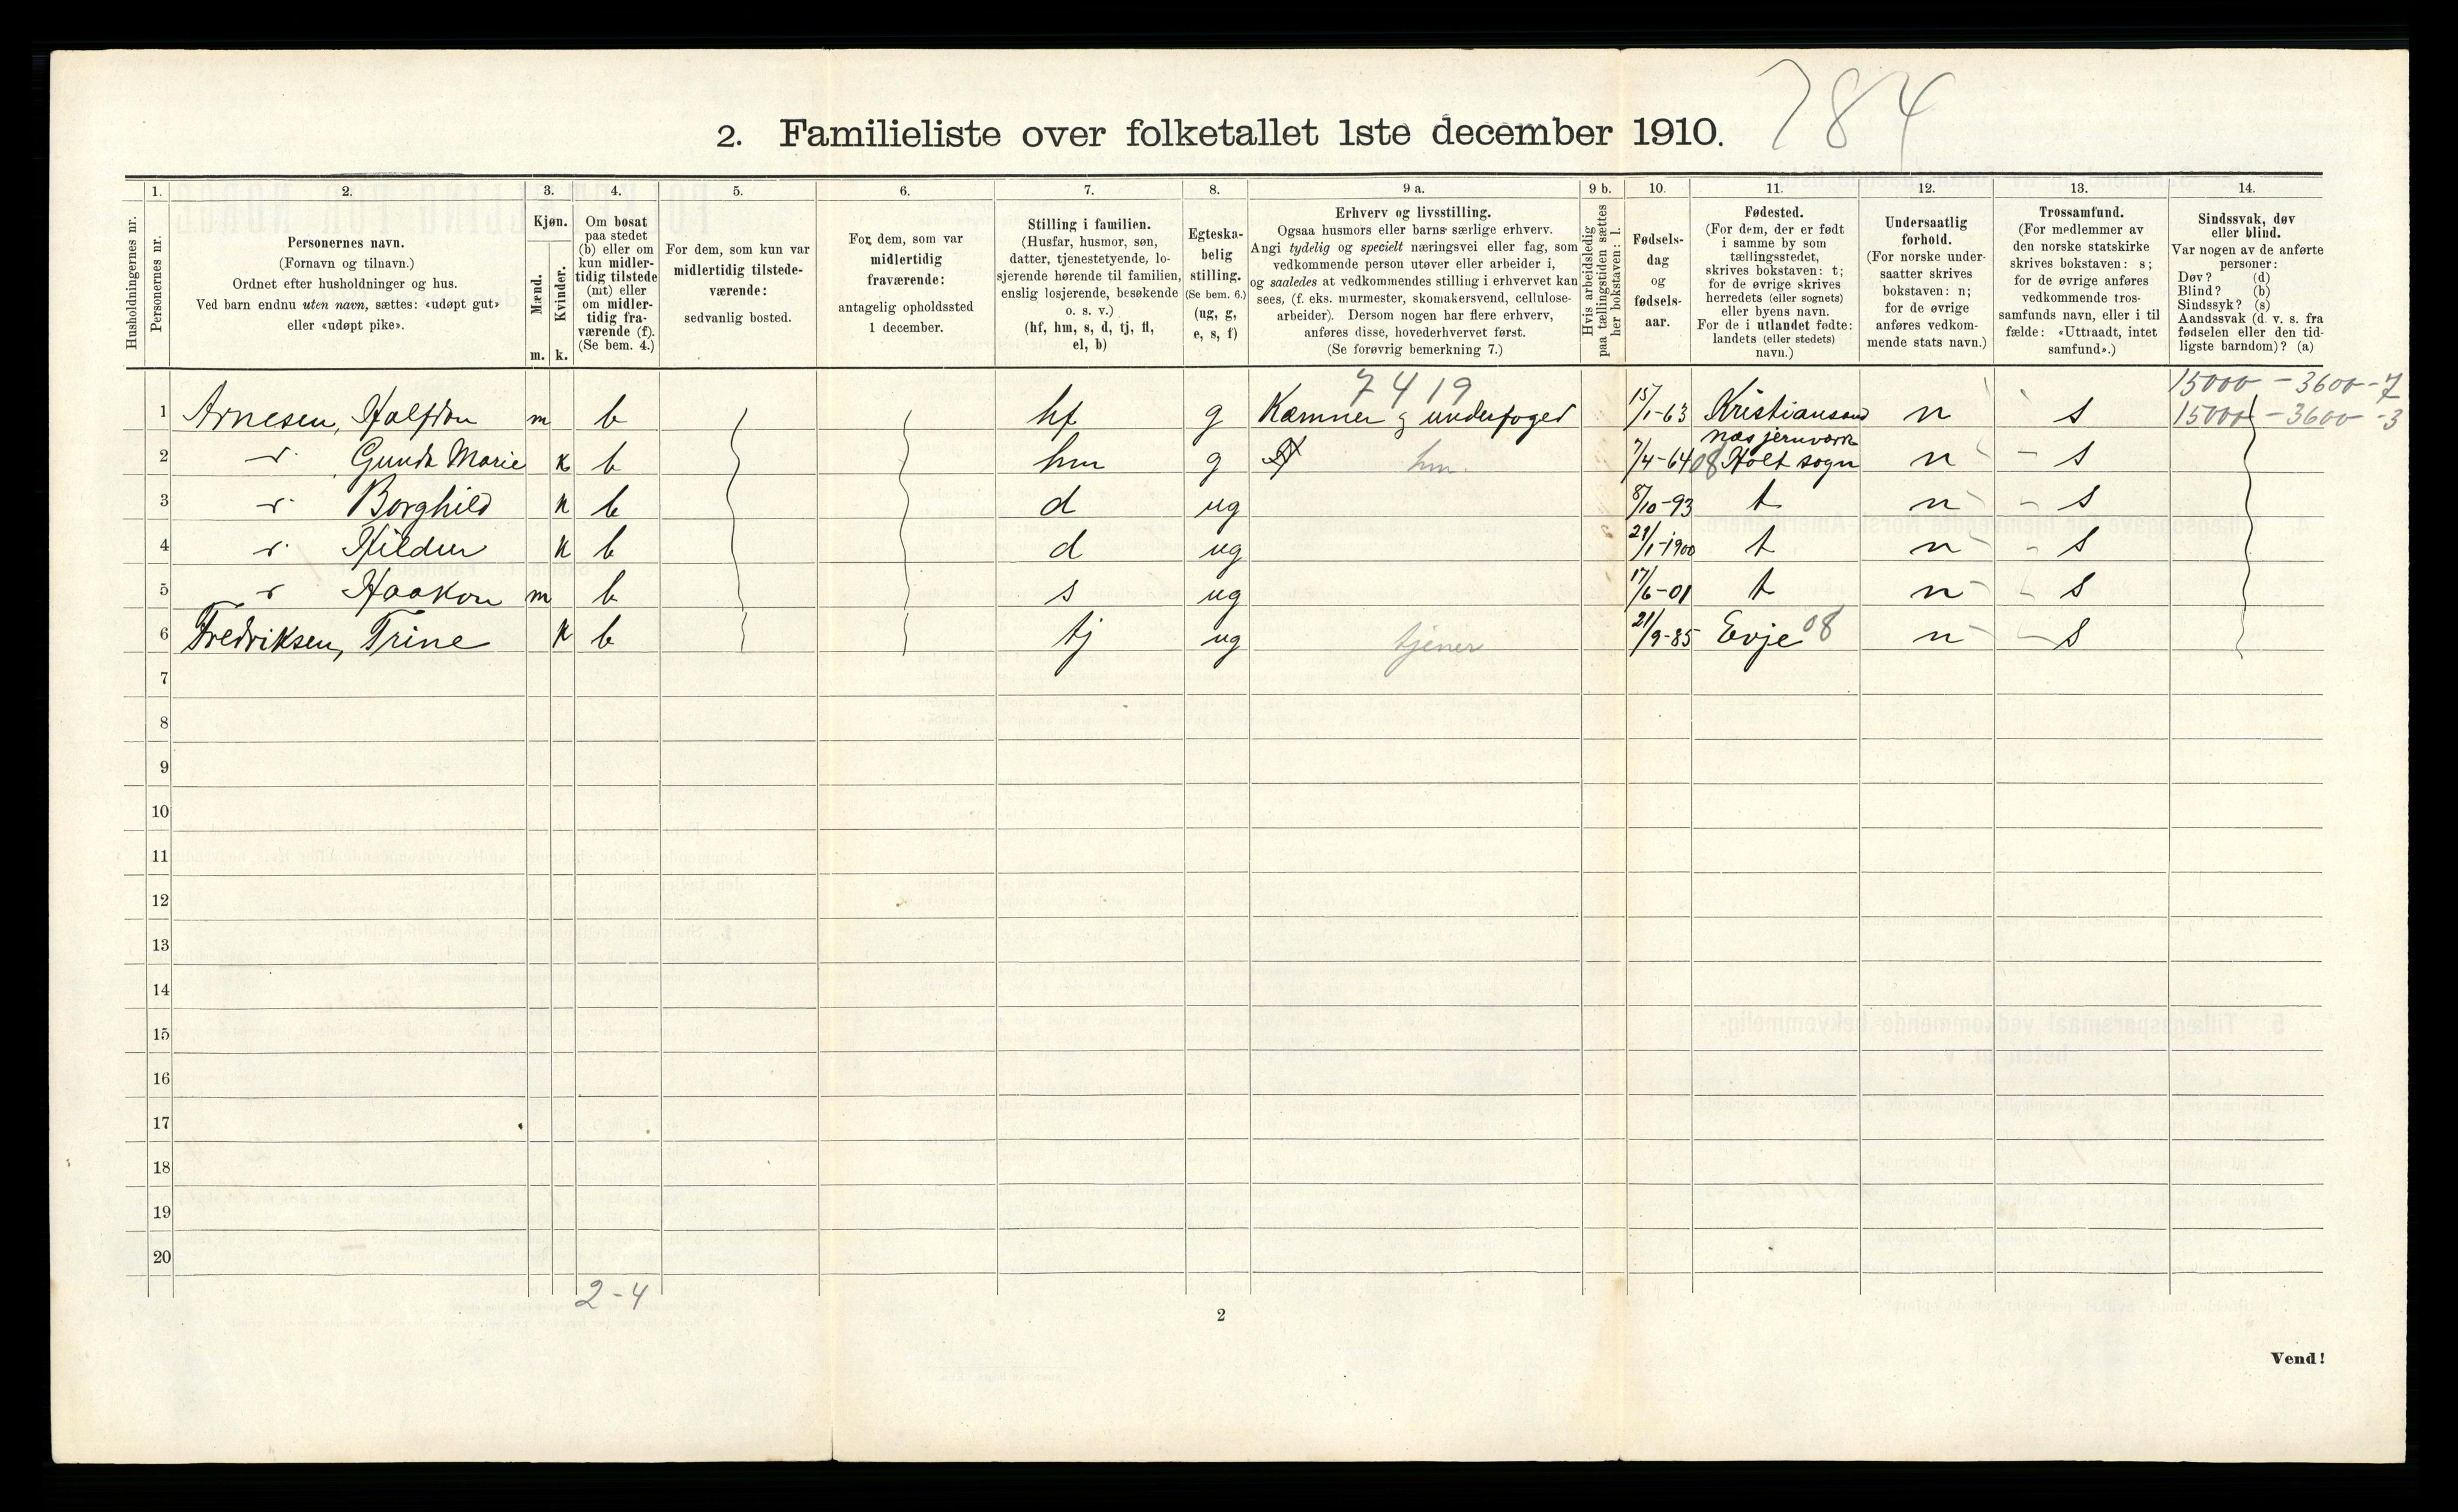 784
2. Familieliste over folketallet 1ste december 1910.
Husholdningernes nr.
1.
Personernes nr.
2.
Personernes navn.
(Fornavn og tilnavn.)
Ordnet efter husholdninger og hus.
Ved barn endnu uten navn, sættes: «udøpt gut»
eller «udøpt pike».
3.
Kjøn.
Mænd.
Kvinder.
m. k.
4.
Om bosat
paa stedet
(b) eller om
kun midler-
tidig tilstede
(mt) eller
om midler-
tidig fra-
værende (f).
(Se bem. 4.)
5.
For dem, som kun var
midlertidig tilstede-
værende:
sedvanlig bosted.
6.
For dem, som var
midlertidig
fraværende:
antagelig opholdssted
1 december.
7.
Stilling i familien.
(Husfar, husmor, søn,
datter, tjenestetyende, lo-
sjerende hørende til familien,
enslig losjerende, besøkende
o. s. v.)
(hf, hm, s, d, tj, fl,
el, b)
8.
Egteska-
belig
stilling.
(Se bem. 6.)
(ug, g,
e, s, f)
9 a.
Erhverv og livsstilling.
Ogsaa husmors eller barns særlige erhverv.
Angi tydelig og specielt næringsvei eller fag, som
vedkommende person utøver eller arbeider i,
og saaledes at vedkommendes stilling i erhvervet kan
sees, (f. eks. murmester, skomakersvend, cellulose-
arbeider). Dersom nogen har flere erhverv,
anføres disse, hovederhvervet først.
(Se forøvrig bemerkning 7.)
9 b.
Hvis arbeidsledig
paa tællingstiden sættes
her bokstaven: l.
10.
Fødsels-
dag
og
fødsels-
aar.
11.
Fødested.
(For dem, der er født
i samme by som
tællingsstedet,
skrives bokstaven: t;
for de øvrige skrives
herredets (eller sognets)
eller byens navn.
For de i utlandet fødte:
landets (eller stedets)
navn.)
12.
Undersaatlig
forhold.
(For norske under-
saatter skrives
bokstaven: n;
for de øvrige
anføres vedkom-
mende stats navn.)
13.
Trossamfund.
(For medlemmer av
den norske statskirke
skrives bokstaven: s;
for de øvrige anføres
vedkommende tros-
samfunds navn, eller i til
fælde: «Uttraadt, intet
samfund».)
14.
Sindssvak, døv
eller blind.
Var nogen av de anførte
personer:
Døv? (d)
Blind? (b)
Sindssyk? (s)
Aandssvak (d. v. s. fra
fødselen eller den tid-
ligste barndom)? (a)
7419 15000 - 3600 - 7
1 Arnesen, Halfdan m b hf g Kæmner & underfoged 15/1-63 Kristiansand n s 15000 - 3600 - 3
Næs jernværk
2 Gunda Marie k b hm g hm. 7/4-64 08 Holt sogn n - s
3 Borghild k b d ug 8/10-93 t n - s
4 Hildur k b d ug 21/1-1900 t n - s
5 Haakon m b s ug 17/6-01 t n - s
6 Fredriksen, Trine k b tj ug tjener 21/9-85 Evje 08 n - s
7
8
9
10
11
12
13
14
15
16
17
18
19
20
2-4
2
Vend!